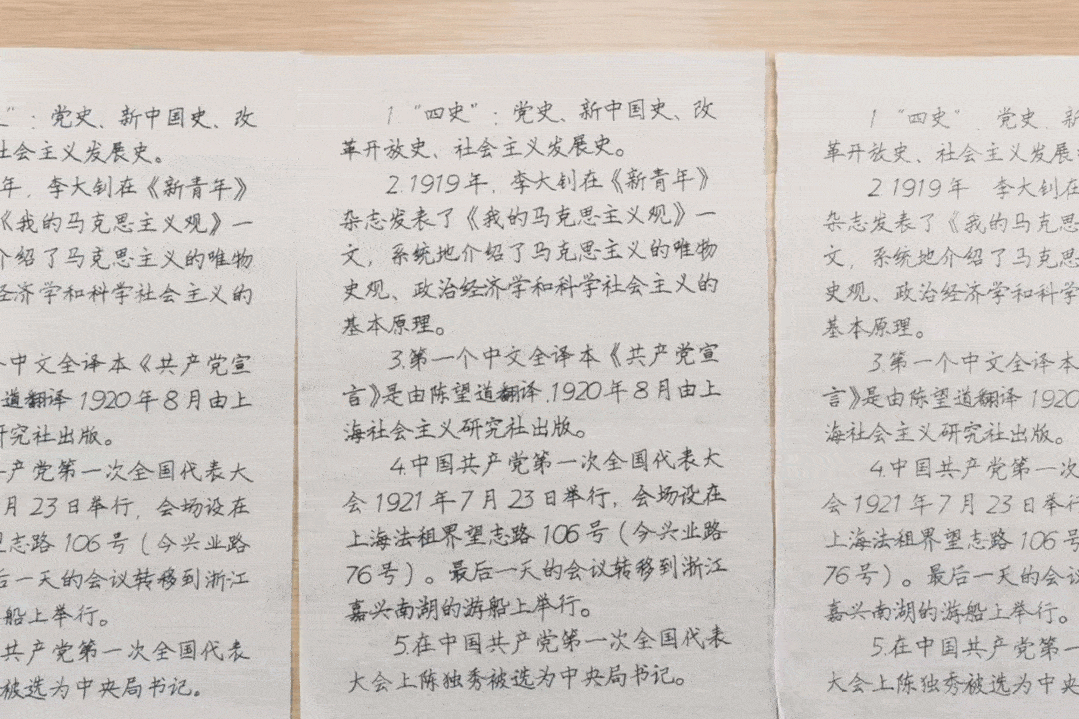 ”：党史、新中国史、改
社会主义发展史。
年，李大钊在《新青年》
《我的马克思主义观》一
介绍了马克思主义的唯物
经济学和科学社会主义的
个中文全译本《共产党宣
道翻译1920年8月由上
研究社出版。
产党第一次全国代表大
月23日举行，会场设在
志路106号（今兴业路
后一天的会议转移到浙江
船上举行。
共产党第一次全国代表
被选为中央局书记。
1“四史”：党史、新中国史、改
革开放史、社会主义发展史。
2.1919年，李大钊在《新青年》
杂志发表了《我的马克思主义观》一
文，系统地介绍了马克思主义的唯物
史观、政治经济学和科学社会主义的
基本原理。
3.第一个中文全译本《共产党宣
言》是由陈望道翻译.1920年8月由上
海社会主义研究社出版。
4.中国共产党第一次全国代表大
会1921年7月23日举行，会场设在
上海法租界望志路106号（今兴业路
76号）。最后一天的会议转移到浙江
嘉兴南湖的游船上举行。
5.在中国共产党第一次全国代表
大会上陈独秀被选为中央局书记。
1“四史” 党史、新
革开放史、社会主义发展
2 1919年 李大钊在
杂志发表了《我的马克思
文，系统地介绍了马克思
史观、政治经济学和科学
基本原理。
3.第一个中文全译本
言》是由陈望道翻译1920
海社会主义研究社出版。
4.中国共产党第一次
会1921年7月23日举行
上海法租界望志路106号
76号）。最后一天的会议
嘉兴南湖的游船上举行。
5.在中国共产党第一
大会上陈独秀被选为中央